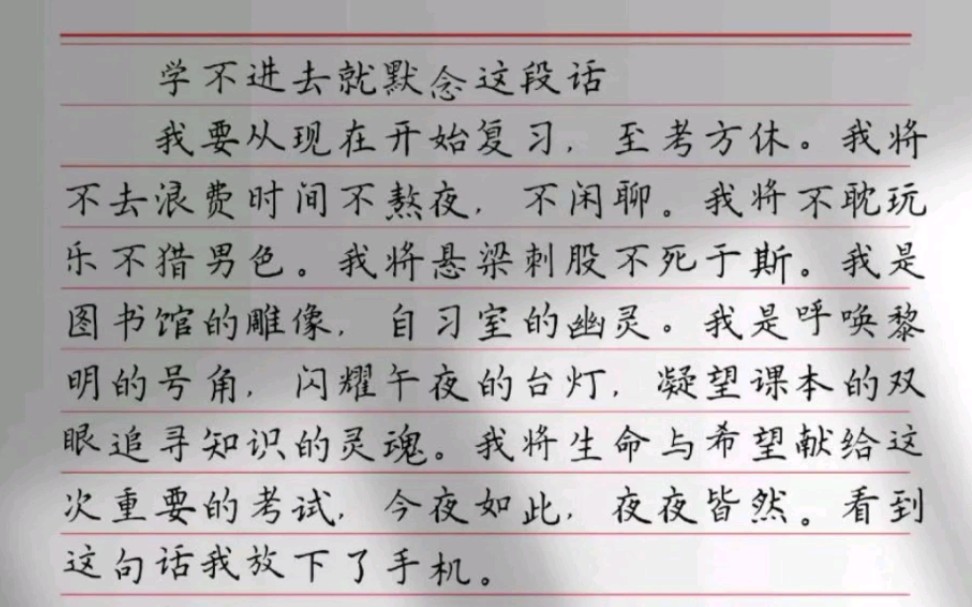 学不进去就默念这段话
我要从现在开始复习，至考方休。我将
不去浪费时间不熬夜，不闲聊。我将不耽玩
乐不猎男色。我将悬梁刺股不死于斯。我是
图书馆的雕像，自习室的幽灵。我是呼唤黎
明的号角，闪耀午夜的台灯，凝望课本的双
眼追寻知识的灵魂。我将生命与希望献给这
次重要的考试，今夜如此，夜夜皆然。看到
这句话我放下了手机。